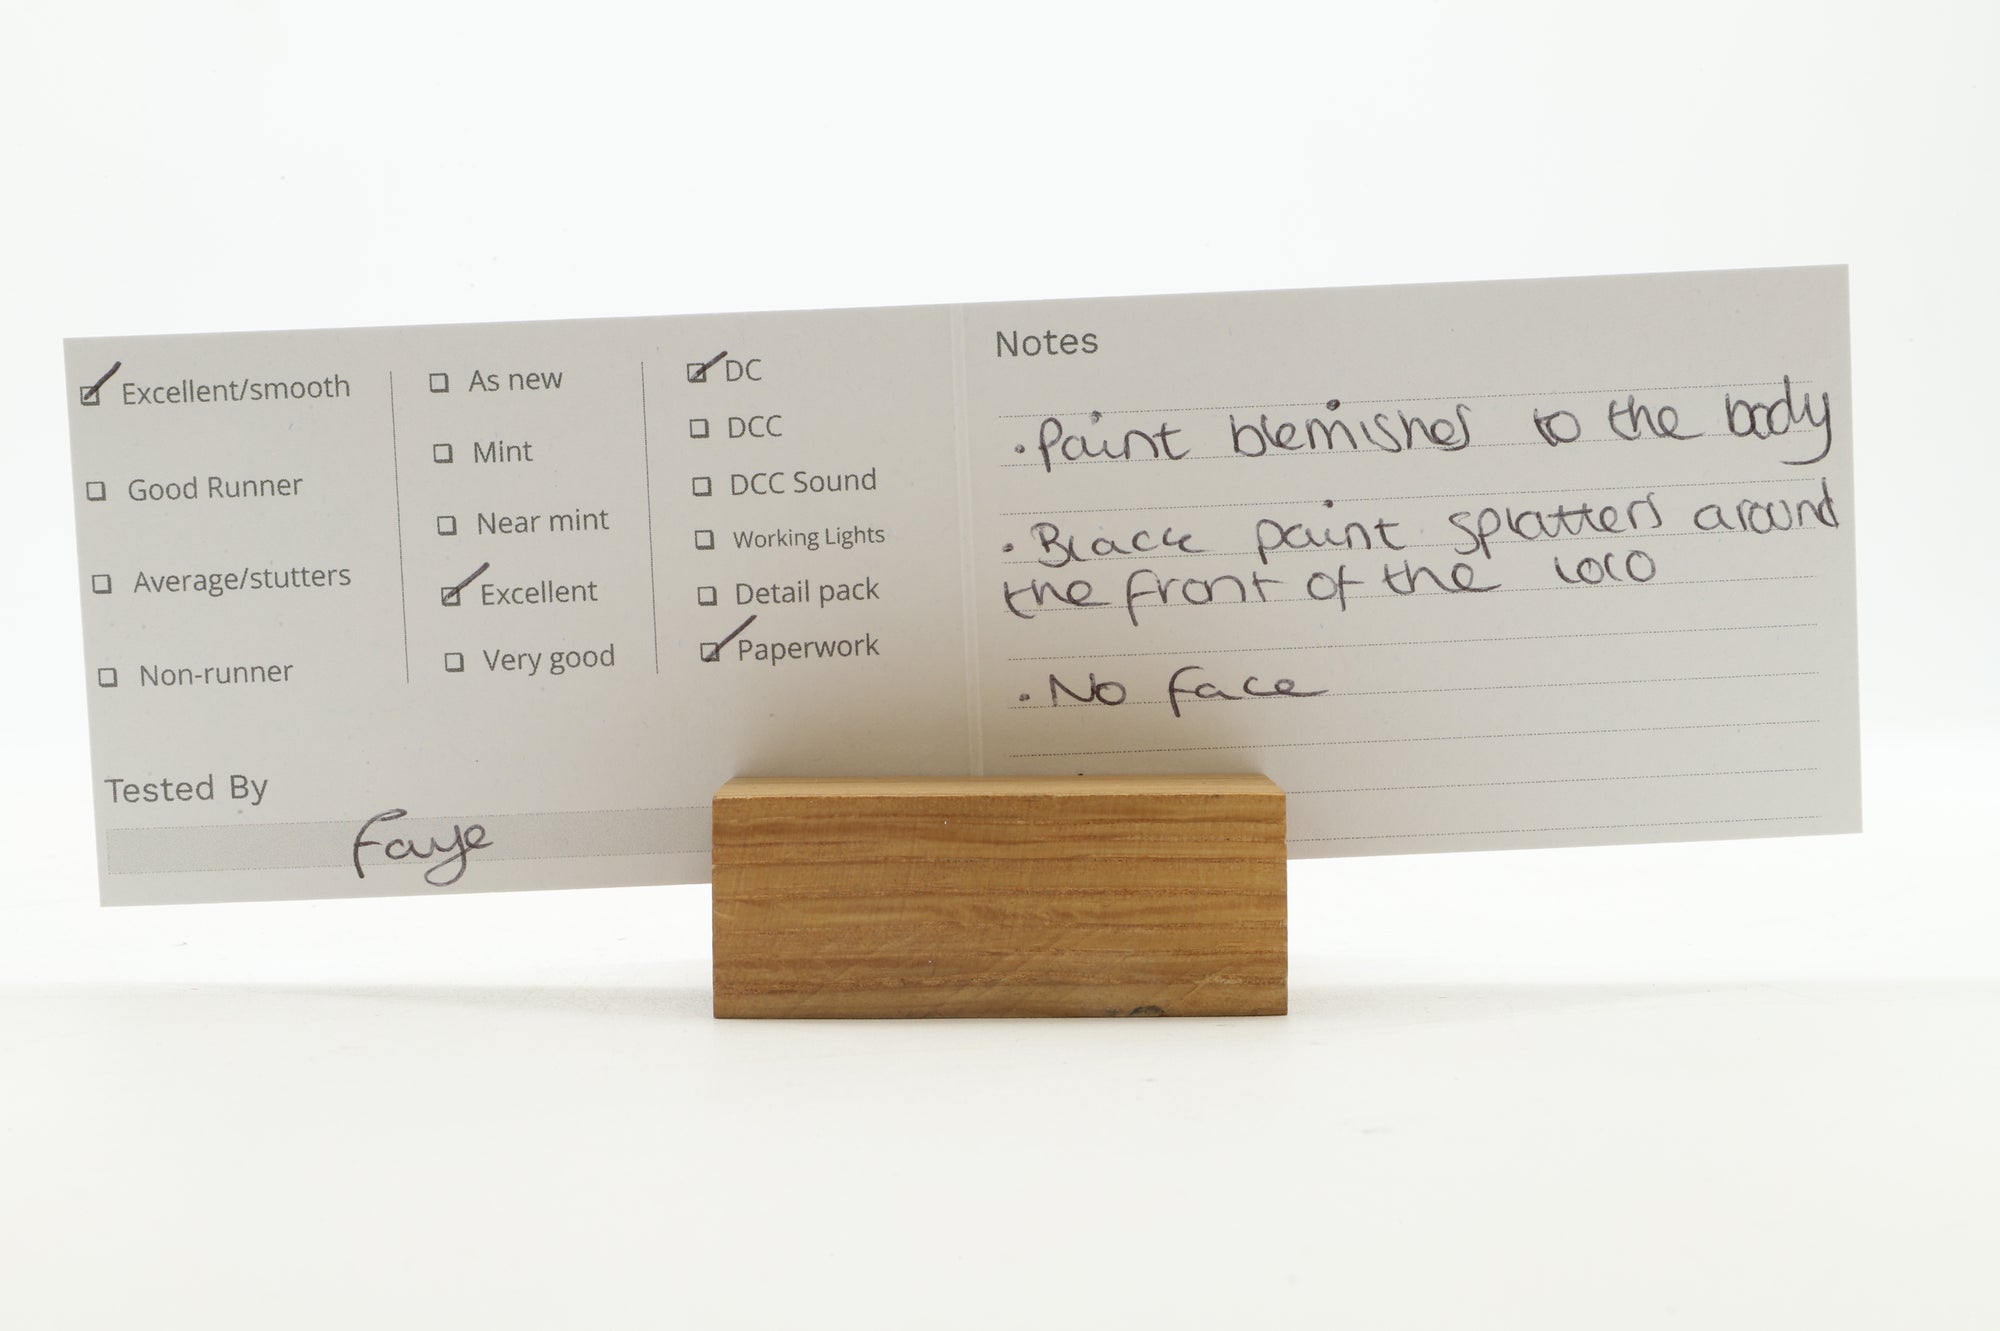 Excellent/smooth
Good Runner
Average/stutters
Non-runner
As new
Mint
Near mint
Excellent
Very good
DC
DCC
DCC Sound
Working Lights
Detail pack
Paperwork
Tested By
Faye
Notes
• Paint blemishes to the body
• Black paint splatters around
the front of the loco
• No face